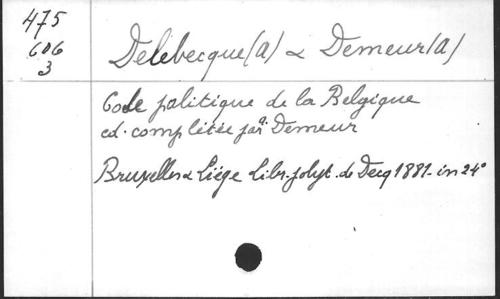 475
606
3
Delebecque (A) & Demeur (A)
Code politique de la Belgique
ed. complétée par A. Demeur
Bruxelles & Liége Libr. polyt. de Decq 1881 - in 24°